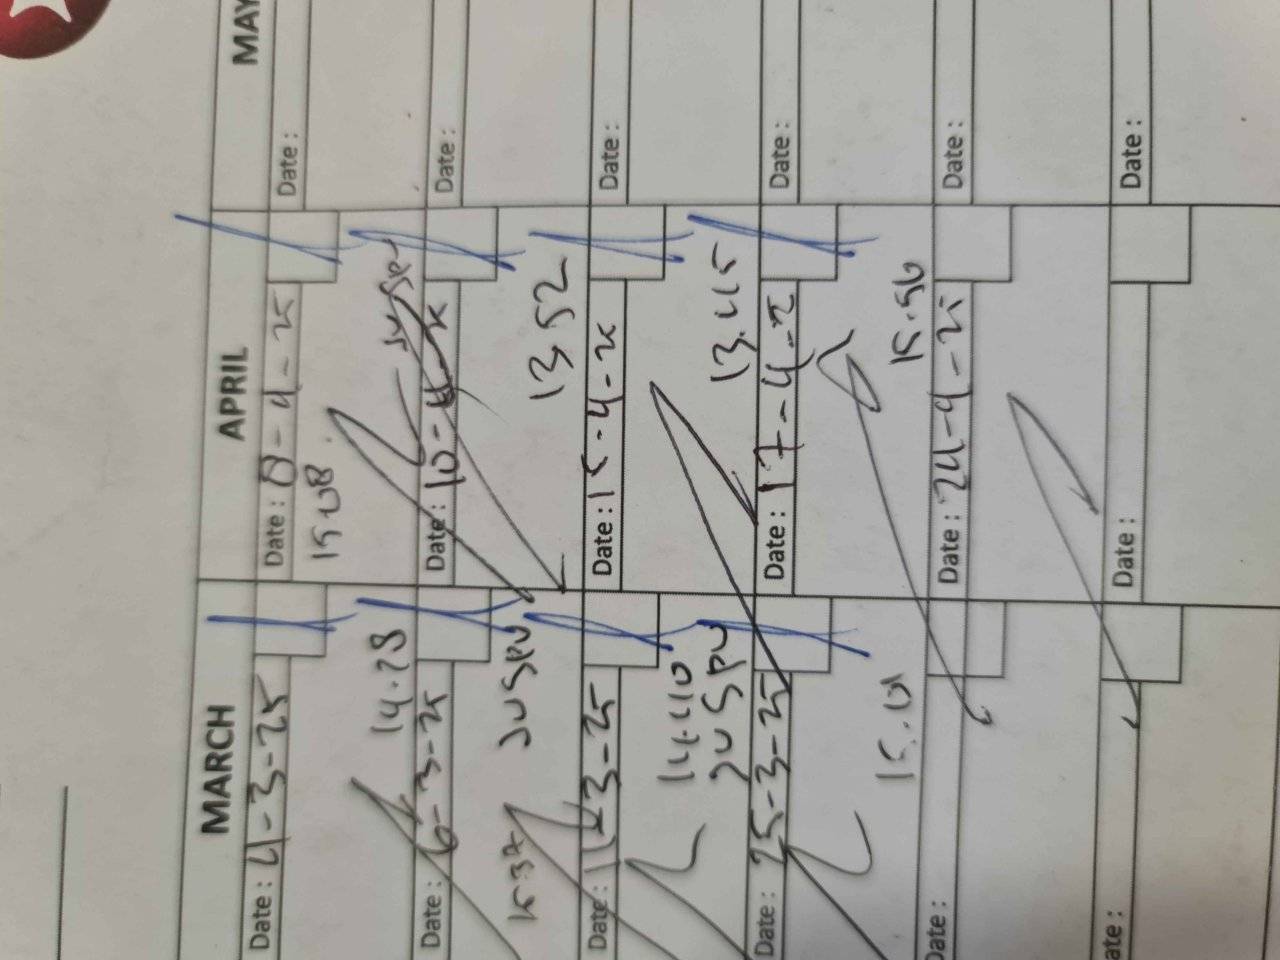 MARCH
Date : 4-3-25
14.28
Date : 6-3-25
15.37
Date : 11-3-25
14.40
Date : 25-3-25
15.01
Date :
ate :
APRIL
Date : 8-4-25
15.08
Date : 10-4-25
13.52
Date : 15-4-25
13.45
Date : 17-4-25
15.56
Date : 24-4-25
Date :
MAY
Date :
Date :
Date :
Date :
Date :
Date :